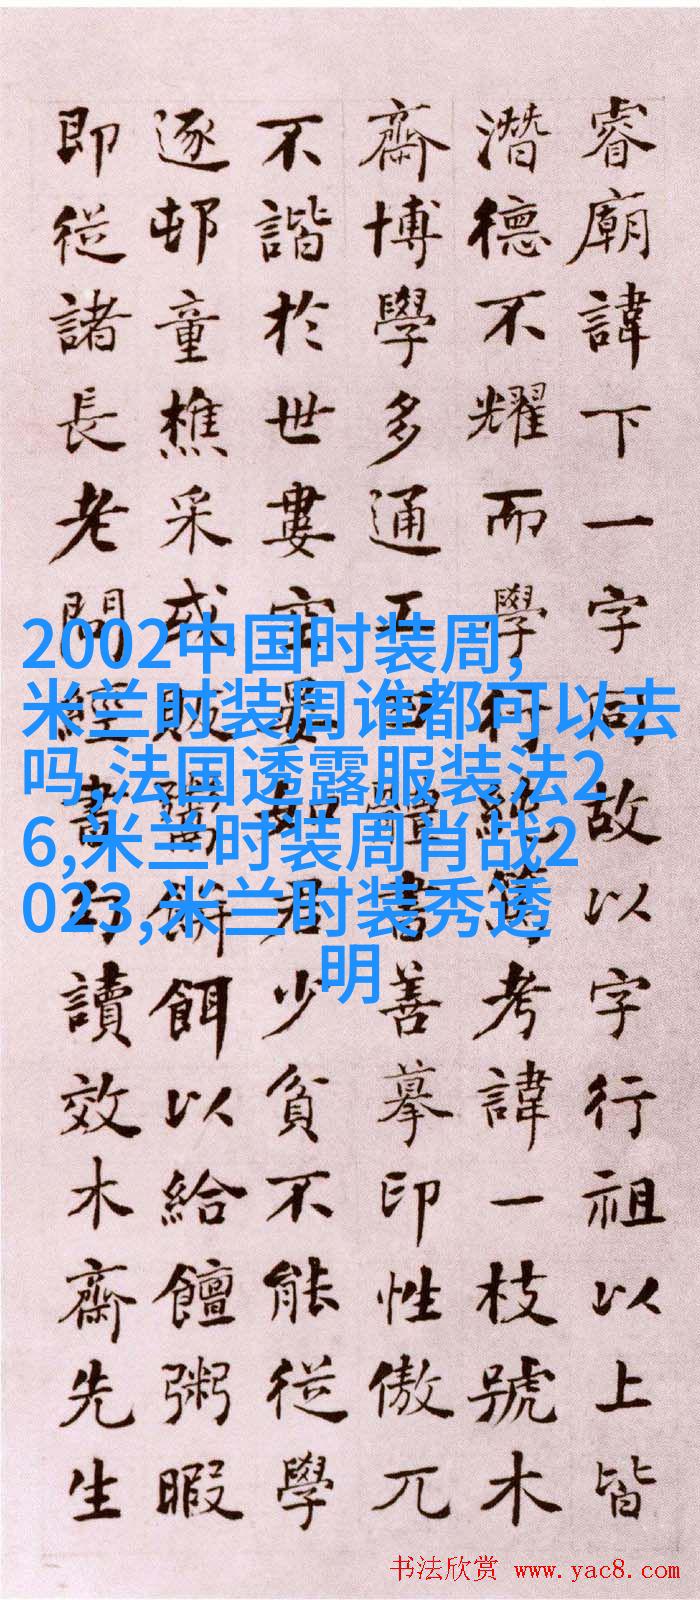 睿廟諱下一字同故以字行祖以上皆
潛德不耀而學行純篤考諱一枝號木
齋博學多通工四體書善摹印性傲兀
不諧於世婁空晏如君少貧不能從學
逐邨童樵采或販鬻餅餌以給饘粥暇
即從諸長老問經書句讀效木齋先生
2002中国时装周,
米兰时装周谁都可以去
吗,法国透露服装法2
6,米兰时装周肖战2
023,米兰时装秀透
明
书法欣赏 www.yac8.com